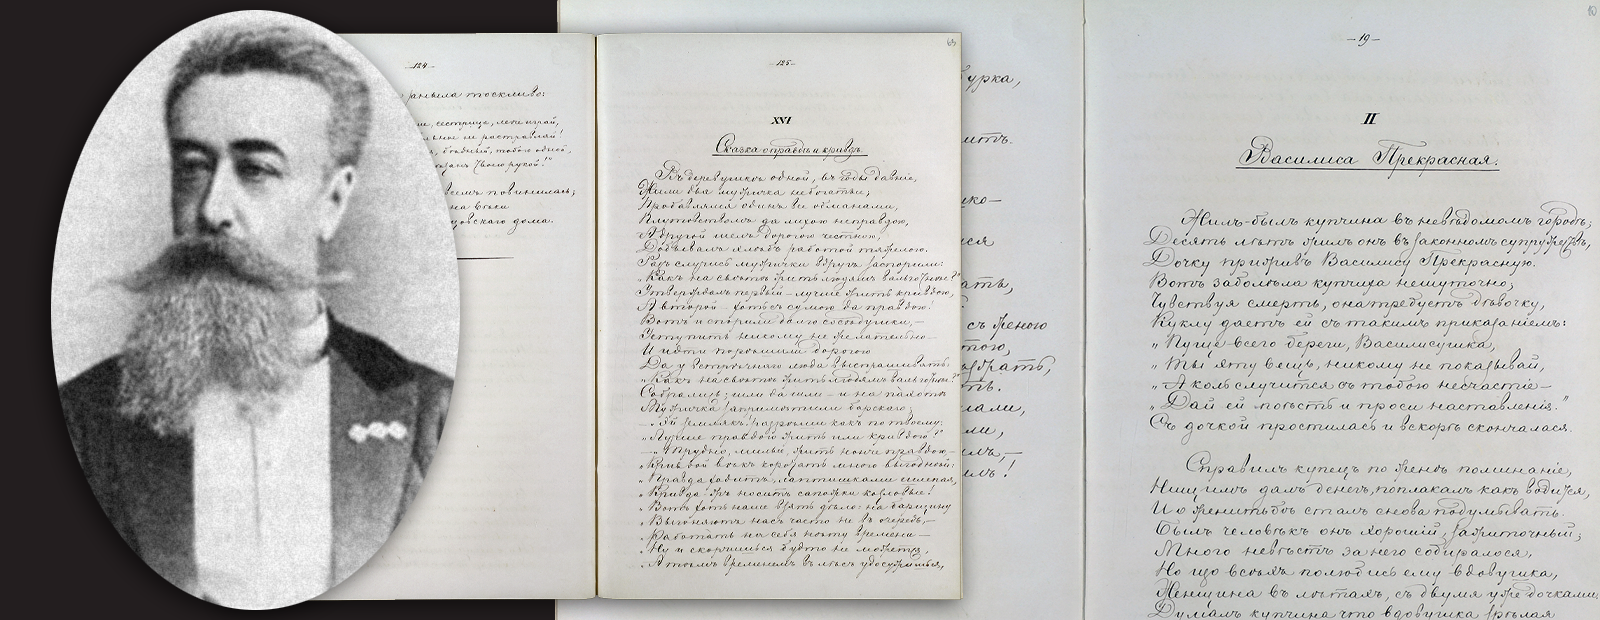 —124—
тоскливо:
сестрица,
повинилась;
дома.
—125—
XVI
Сказка о правдѣ и кривдѣ.
Въ деревушкѣ одной, въ годы давніе,
Жили два мужичка небогатыи;
Пробавлялся одинъ все обманами,
Плутовствомъ да лихою неправдою,
А другой шелъ дорогою честною,
Добывалъ хлѣбъ работой тяжелою.
Разъ случись мужички вдругъ заспорили:
„Какъ на свѣтѣ жить людямъ вальготнѣе?"
Утверждалъ первый — лучше жить кривдою,
А второй — хоть съ сумою да правдою!
Вотъ и спорили долго сосѣдушки, —
Уступить никому не желательно —
И идти порѣшили дорогою
Да у встрѣчнаго люда выспрашивать:
„Какъ на свѣтѣ жить людямъ вальготнѣе?"
Собрались; шли да шли — и на пахотѣ
Мужичка запримѣтили барскаго;
— Эй землякъ! разрѣши какъ по твоему:
„Лучше правдой жить или кривдой?"
— „Трудно, милый, жить нонче правдою, —
„Кривдой вѣкъ коротать много выгоднѣй:
„Правда ходитъ, лаптишками шлепая,
„Кривда-жъ носитъ сапожки козловые!
„Вотъ хоть наше взять дѣло: на барщину
„Выгоняютъ насъ часто не въ очередь, —
„Работать на себя нѣту времени —
„Ну и скорчишься будто не можется,
„А тѣмъ временемъ въ лѣсъ удосужишься,
65
урка,
ко—
ся
ать,
съ женою
тою,
ѣ!
—19—
10
II
Василиса Прекрасная.
Жилъ-былъ купчина въ невѣдомомъ городѣ;
Десять лѣтъ жилъ онъ въ законномъ супружествѣ,
Дочку приживъ Василису Прекрасную.
Вотъ заболѣла купчиха нешуточно;
Чувствуя смерть, она требуетъ дѣвочку,
Куклу даетъ ей съ такимъ приказаніемъ:
„Пуще всего береги, Василисушка,
„Ты эту вещь, никому не показывай,
„А коль случится съ тобою несчастіе —
„Дай ей поѣсть и проси наставленія."
Съ дочкой простилась и вскорѣ скончалася.
Справилъ купецъ по женѣ поминаніе,
Нищимъ далъ денегъ, поплакалъ какъ водится,
И о женитьбѣ сталъ снова подумывать.
Былъ человѣкъ онъ хорошій, зажиточный;
Много невѣстъ за него собиралося,
Но що всѣхъ полюбись ему вдовушка,
Женщина въ лѣтахъ, съ двумя уже дочками:
Думалъ купчина что вдовушка зрѣлая